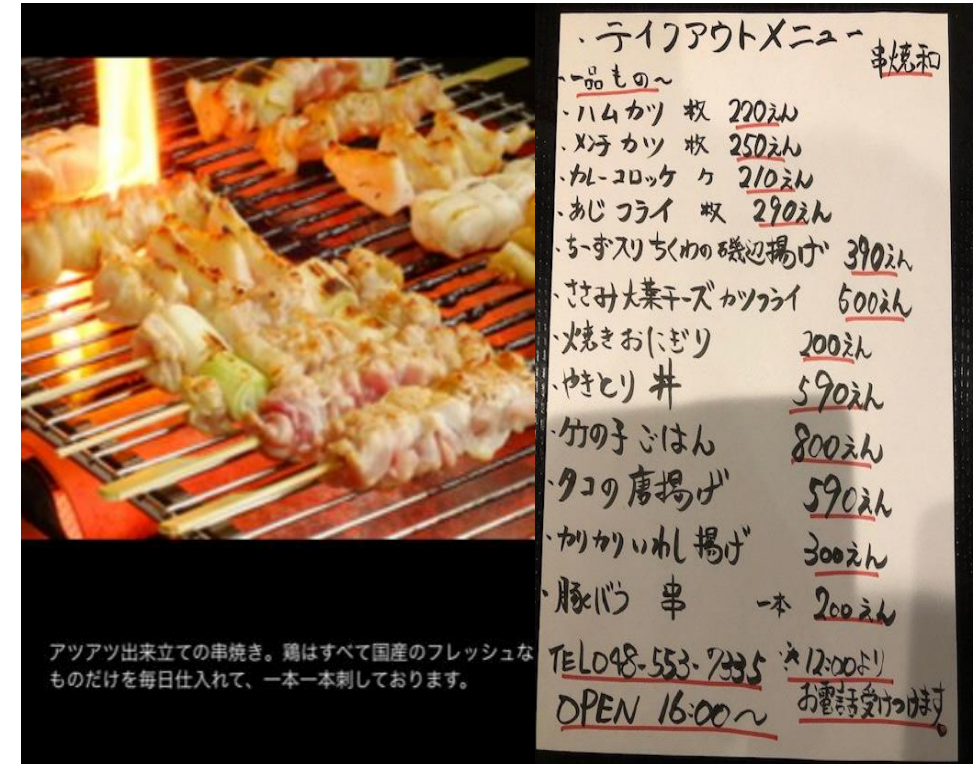 アツアツ出来立ての串焼き。鶏はすべて国産のフレッシュな
ものだけを毎日仕入れて、一本一本刺しております。
・テイクアウトメニュー
串焼和
・一品もの〜
・ハムカツ 枚 220えん
・メンチカツ 枚 250えん
・カレーコロッケ ケ 210えん
・あじフライ 枚 290えん
・ちーず入りちくわの磯辺揚げ 390えん
・ささみ大葉チーズカツフライ 500えん
・焼きおにぎり 200えん
・やきとり丼 590えん
・竹の子ごはん 800えん
・タコの唐揚げ 590えん
・カリカリいわし揚げ 300えん
・豚バラ串 一本 200えん
TEL048-553-7335 ※12:00より
お電話受けつけます。
OPEN 16:00〜